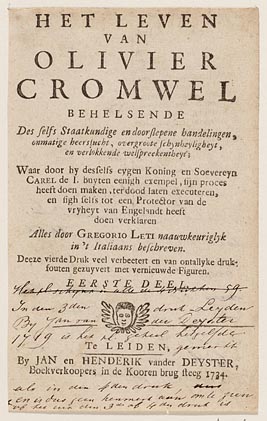 HET LEVEN
VAN
OLIVIER
CROMWEL
BEHELSENDE
Des selfs Staatkundige en doorslepene handelingen,
onmatige heerssucht, overgroote schynheyligheyt,
en verlokkende welspreekentheyt;
Waar door hy desselfs eygen Koning en Soevereyn
CAREL de I. buyten eenigh exempel, sijn proces
heeft doen maken, ter dood laten executeren,
en sigh selfs tot een Protector van de
vryheyt van Engelandt heeft
doen verklaren
Alles door GREGORIO LETI naauwkeuriglyk
in 't Italiaans beschreven.
Deeze vierde Druk veel verbeetert en van ontallyke druk-
fouten gezuyvert met vernieuwde Figuren.
EERSTE DEEL.
In den 3den druk Leyden
By Jan van der Deyster
1749 is het
Te LEIDEN,
By JAN en HENDERIK vander DEYSTER,
Boekverkoopers in de Kooren brug steeg 1734.
als in den 4den druk